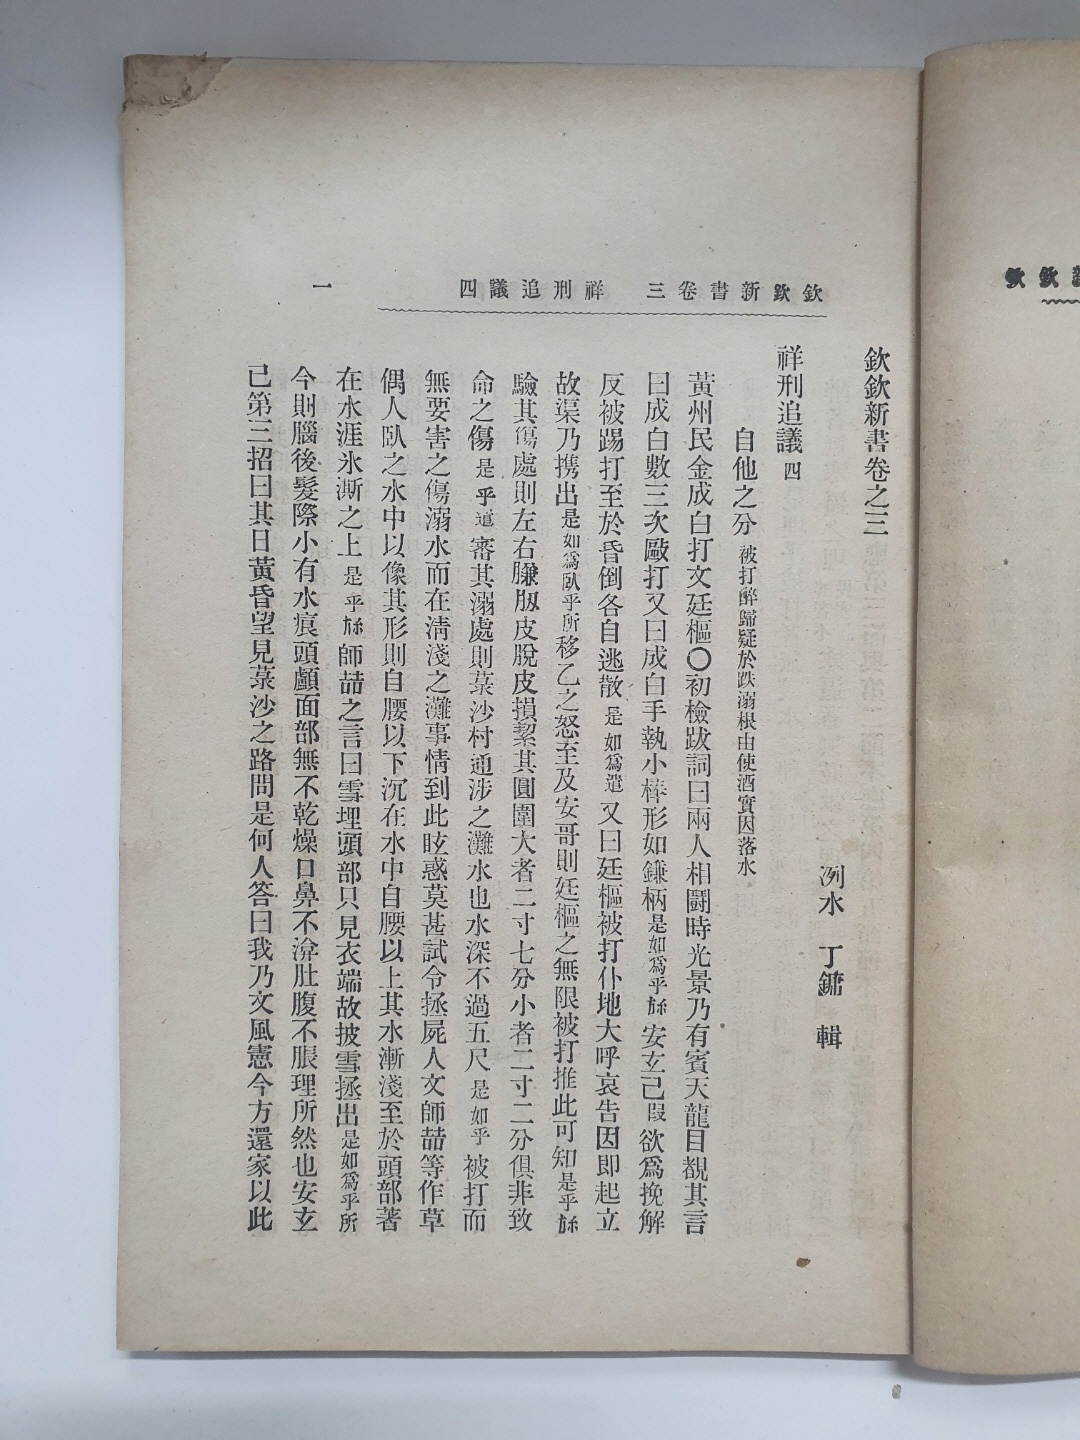 欽欽新書卷三　祥刑追議四　一
欽欽新書卷之三
洌水　丁鏞　輯
祥刑追議 四
自他之分 被打醉歸疑於跌溺根由使酒實因落水
黃州民金成白打文廷樞〇初檢跋詞曰兩人相鬪時光景乃有賓天龍目覩其言
曰成白數三次敺打又曰成白手執小棒形如鎌柄是如爲乎㫆安玄己段欲爲挽解
反被踢打至於昏倒各自逃散是如爲遣又曰廷樞被打仆地大呼哀告因即起立
故渠乃携出是如爲臥乎所移乙之怒至及安哥則廷樞之無限被打推此可知是乎㫆
驗其傷處則左右臁肕皮脫皮損絜其圓圍大者二寸七分小者二寸二分俱非致
命之傷是乎遣審其溺處則菉沙村通涉之灘水也水深不過五尺是如乎被打而
無要害之傷溺水而在淸淺之灘事情到此眩惑莫甚試令拯屍人文師喆等作草
偶人臥之水中以像其形則自腰以下沉在水中自腰以上其水漸淺至於頭部著
在水涯氷澌之上是乎㫆師喆之言曰雪埋頭部只見衣端故披雪拯出是如爲乎所
今則腦後髮際小有水痕頭顱面部無不乾燥口鼻不渰肚腹不脹理所然也安玄
己第三招曰其日黃昏望見菉沙之路問是何人答曰我乃文風憲今方還家以此
欽欽新